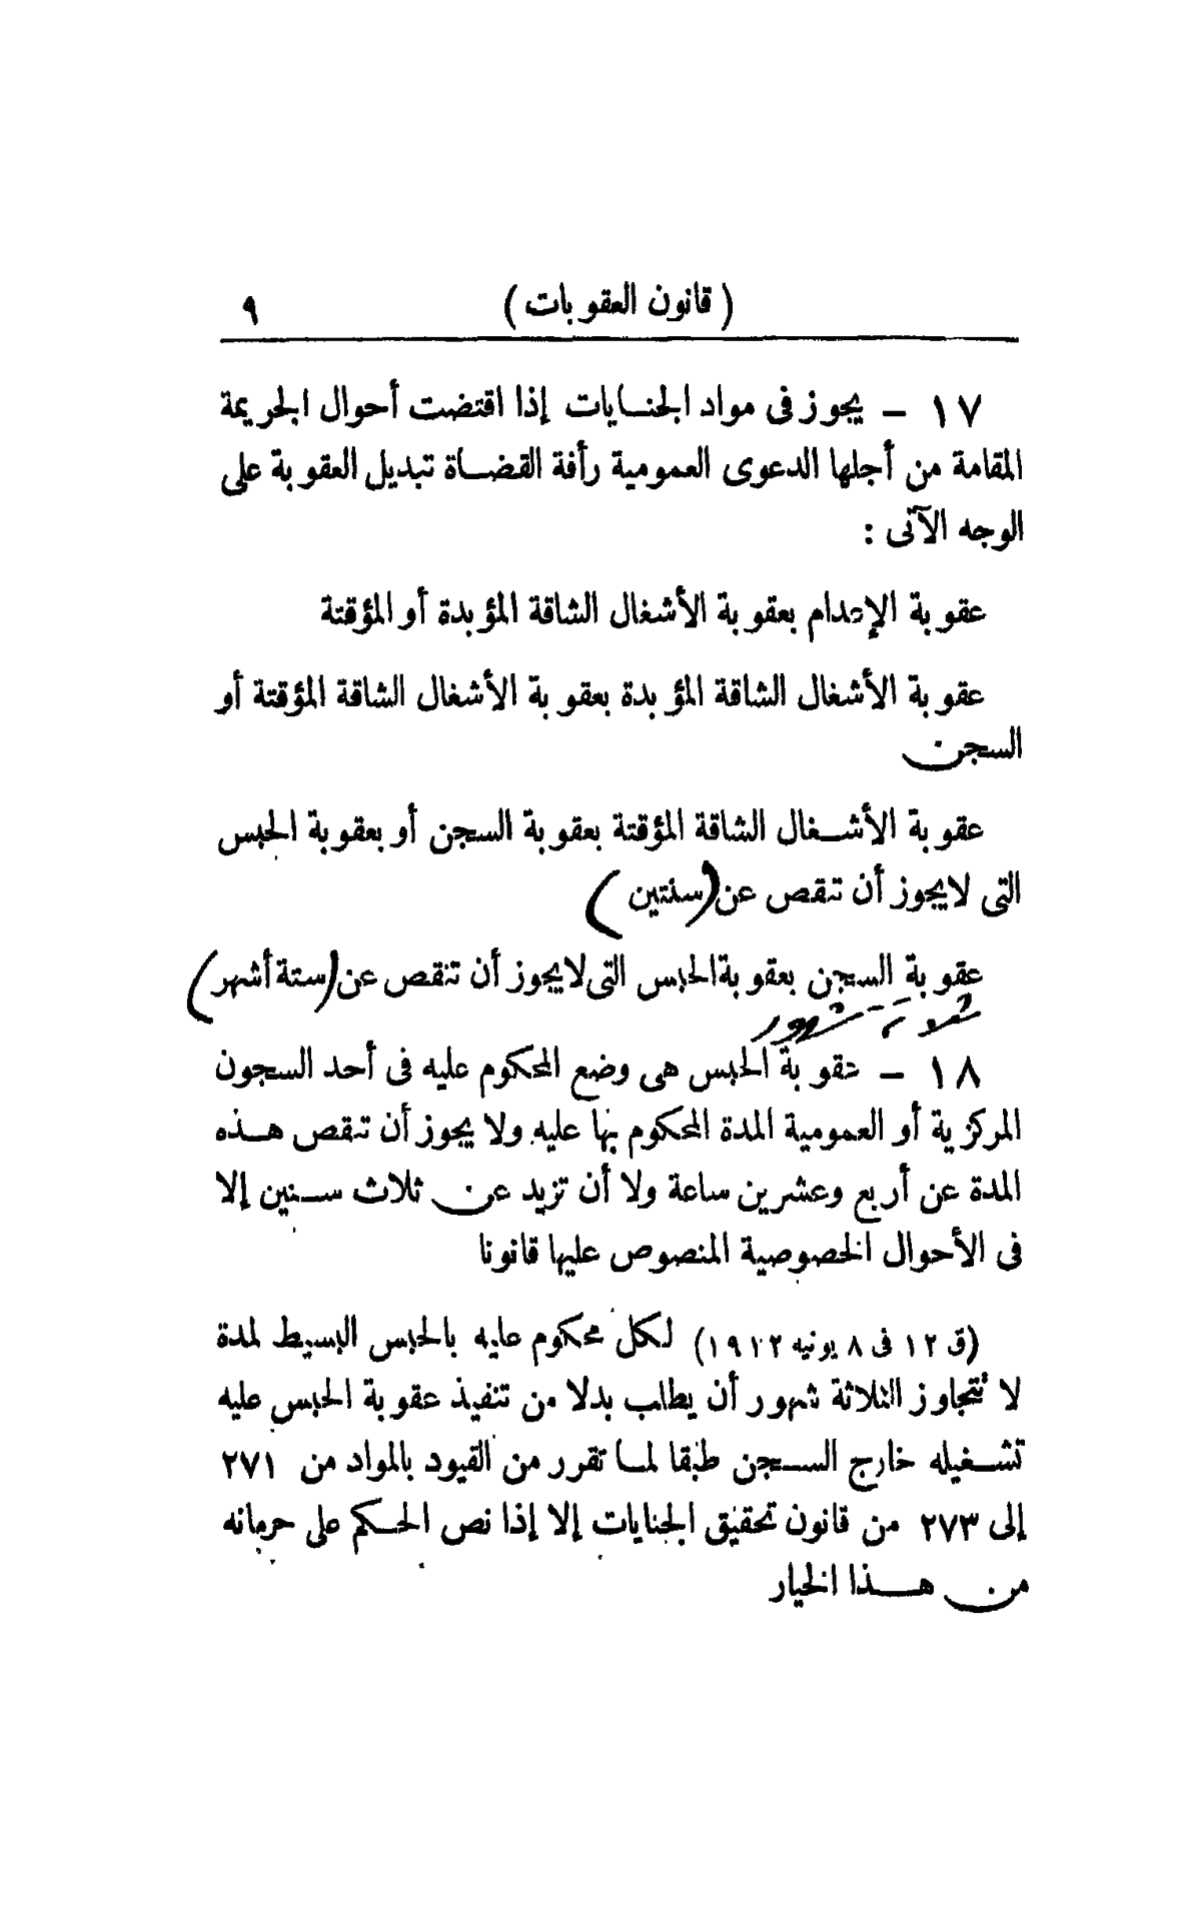 ( قانون العقوبات ) ٩
١٧ – يجوز فى مواد الجنايات إذا اقتضت أحوال الجريمة
المقامة من أجلها الدعوى العمومية رأفة القضاة تبديل العقوبة على
الوجه الآتى :
عقوبة الإعدام بعقوبة الأشغال الشاقة المؤبدة أو المؤقتة
عقوبة الأشغال الشاقة المؤبدة بعقوبة الأشغال الشاقة المؤقتة أو
السجن
عقوبة الأشغال الشاقة المؤقتة بعقوبة السجن أو بعقوبة الحبس
التى لا يجوز أن تنقص عن (سنتين )
عقوبة السجن بعقوبة الحبس التى لا يجوز أن تنقص عن (ستة أشهر)
ثلاثة شهور
١٨ – عقوبة الحبس هى وضع المحكوم عليه فى أحد السجون
المركزية أو العمومية المدة المحكوم بها عليه ولا يجوز أن تنقص هذه
المدة عن أربع وعشرين ساعة ولا أن تزيد عن ثلاث سنين إلا
فى الأحوال الخصوصية المنصوص عليها قانونا
(ق ١٢ فى ٨ يونيه ١٩١٢) لكل محكوم عليه بالحبس البسيط لمدة
لا تتجاوز الثلاثة شهور أن يطلب بدلا من تنفيذ عقوبة الحبس عليه
تشغيله خارج السجن طبقا لما تقرر من القيود بالمواد من ٢٧١
إلى ٢٧٣ من قانون تحقيق الجنايات إلا إذا نص الحكم على حرمانه
من هذا الخيار